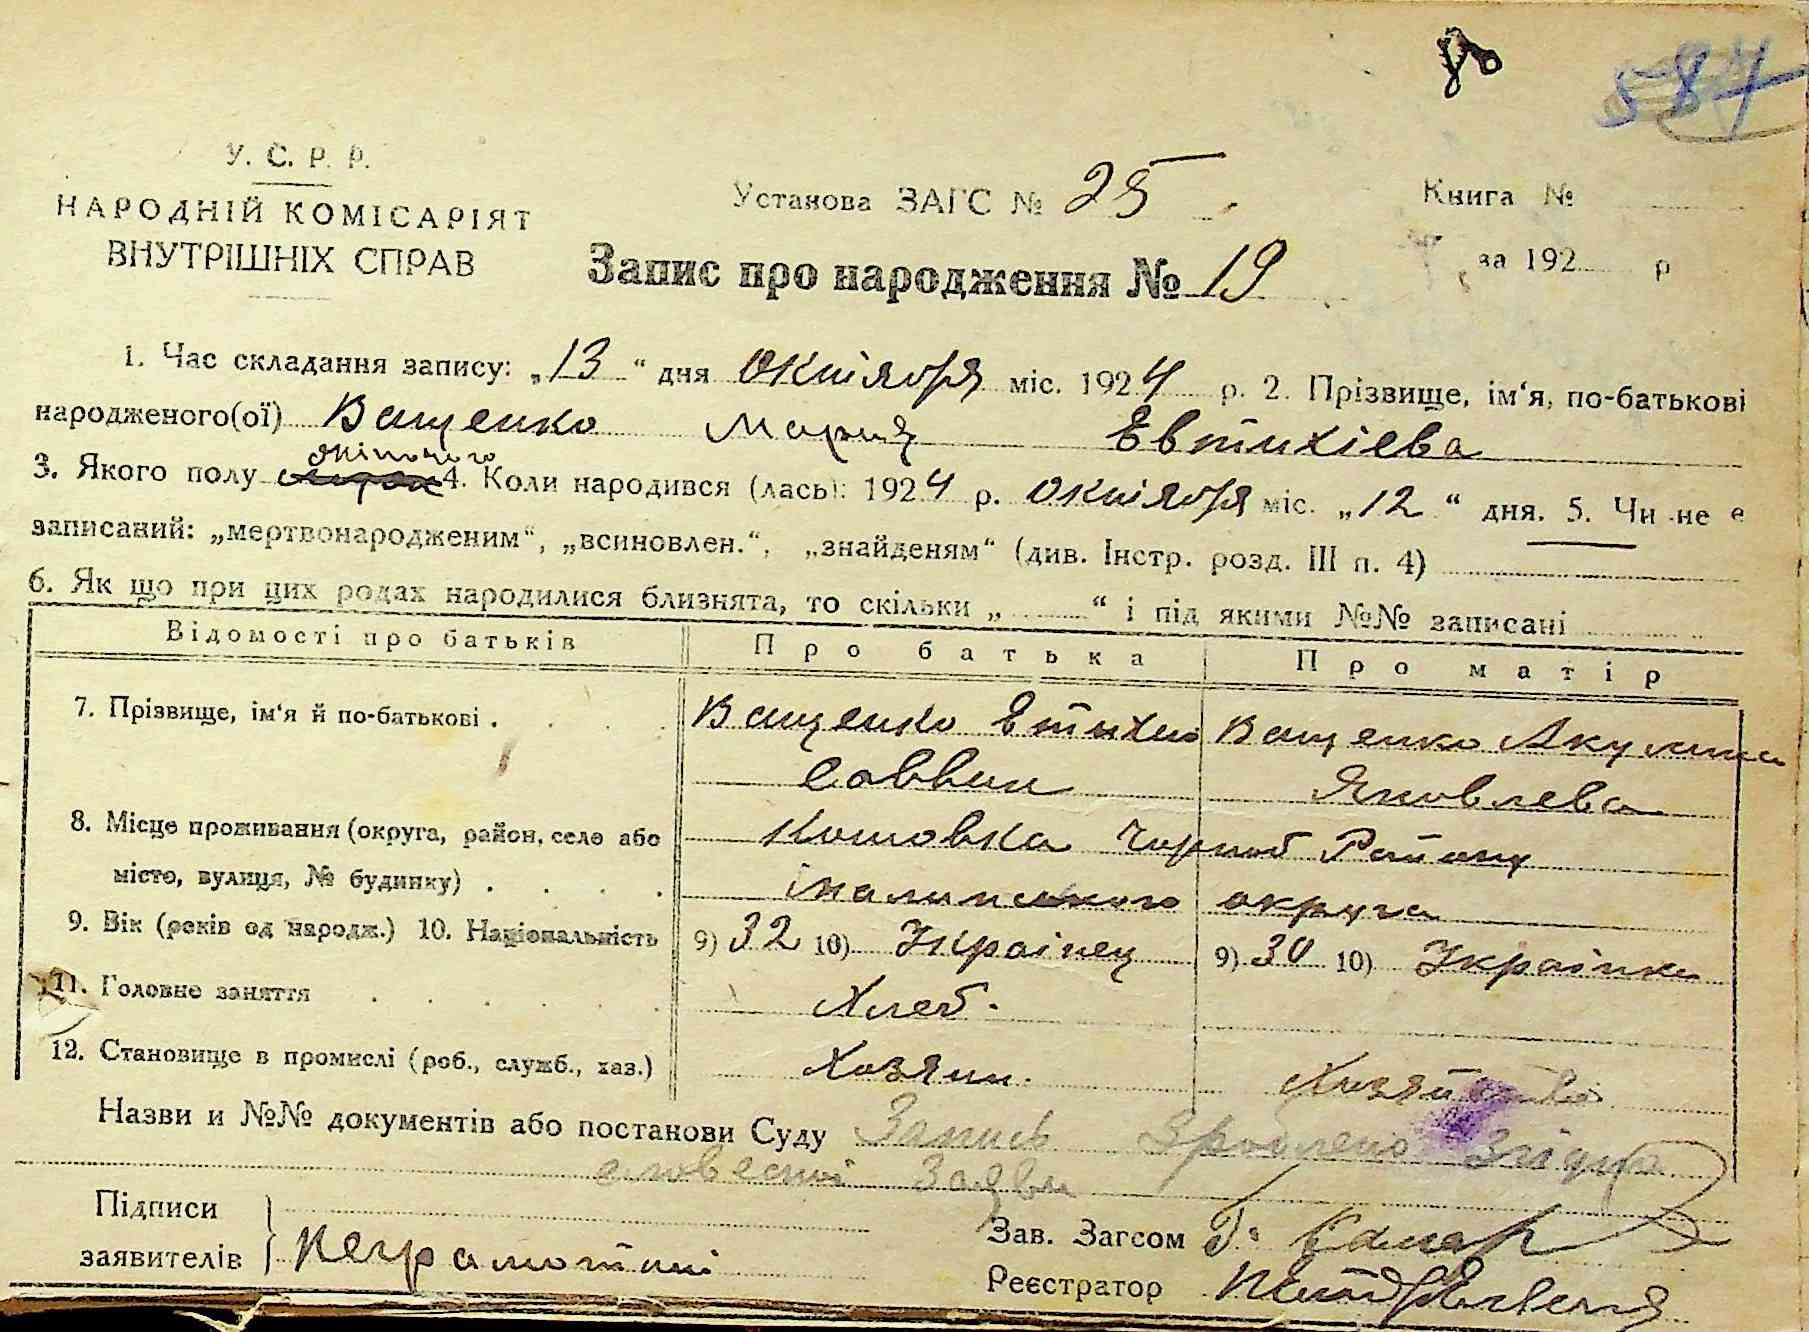 587
У. С. Р. Р.
НАРОДНІЙ КОМІСАРІЯТ
ВНУТРІШНІХ СПРАВ
Установа ЗАГС № 25
Книга №
за 192 р
Запис про народження № 19
1. Час складання запису: „13“ дня Октября міс. 1924 р. 2. Прізвище, ім‘я, по-батькові
народженого(ої) Ващенко Мария Евтихіева
3. Якого полу жіночого 4. Коли народився (лась): 1924 р. Октября міс. „12“ дня. 5. Чи не є
записаний: „мертвонародженим“, „всиновлен.“, „знайденям“ (див. Інстр. розд. III п. 4)
6. Як що при цих родах народилися близнята, то скільки „ “ і під якими №№ записані
Відомості про батьків Про батька Про матір
7. Прізвище, ім‘я й по-батькові . Ващенко Евтихий Ващенко Акулина
Саввич Яковлева
8. Місце проживання (округа, район, село або
місто, вулиця, № будинку) . округа
9. Вік (років од народж.) 10. Національність 9) 32 10) Украінец 9) 30 10) Украінка
11. Головне заняття Хлеб.
12. Становище в промислі (роб., служб., хаз.) Хозяин.
Назви и №№ документів або постанови Суду Запись зроблено згідно
словесної заяви
Підписи
заявителів Неграмотні
Зав. Загсом
Реєстратор